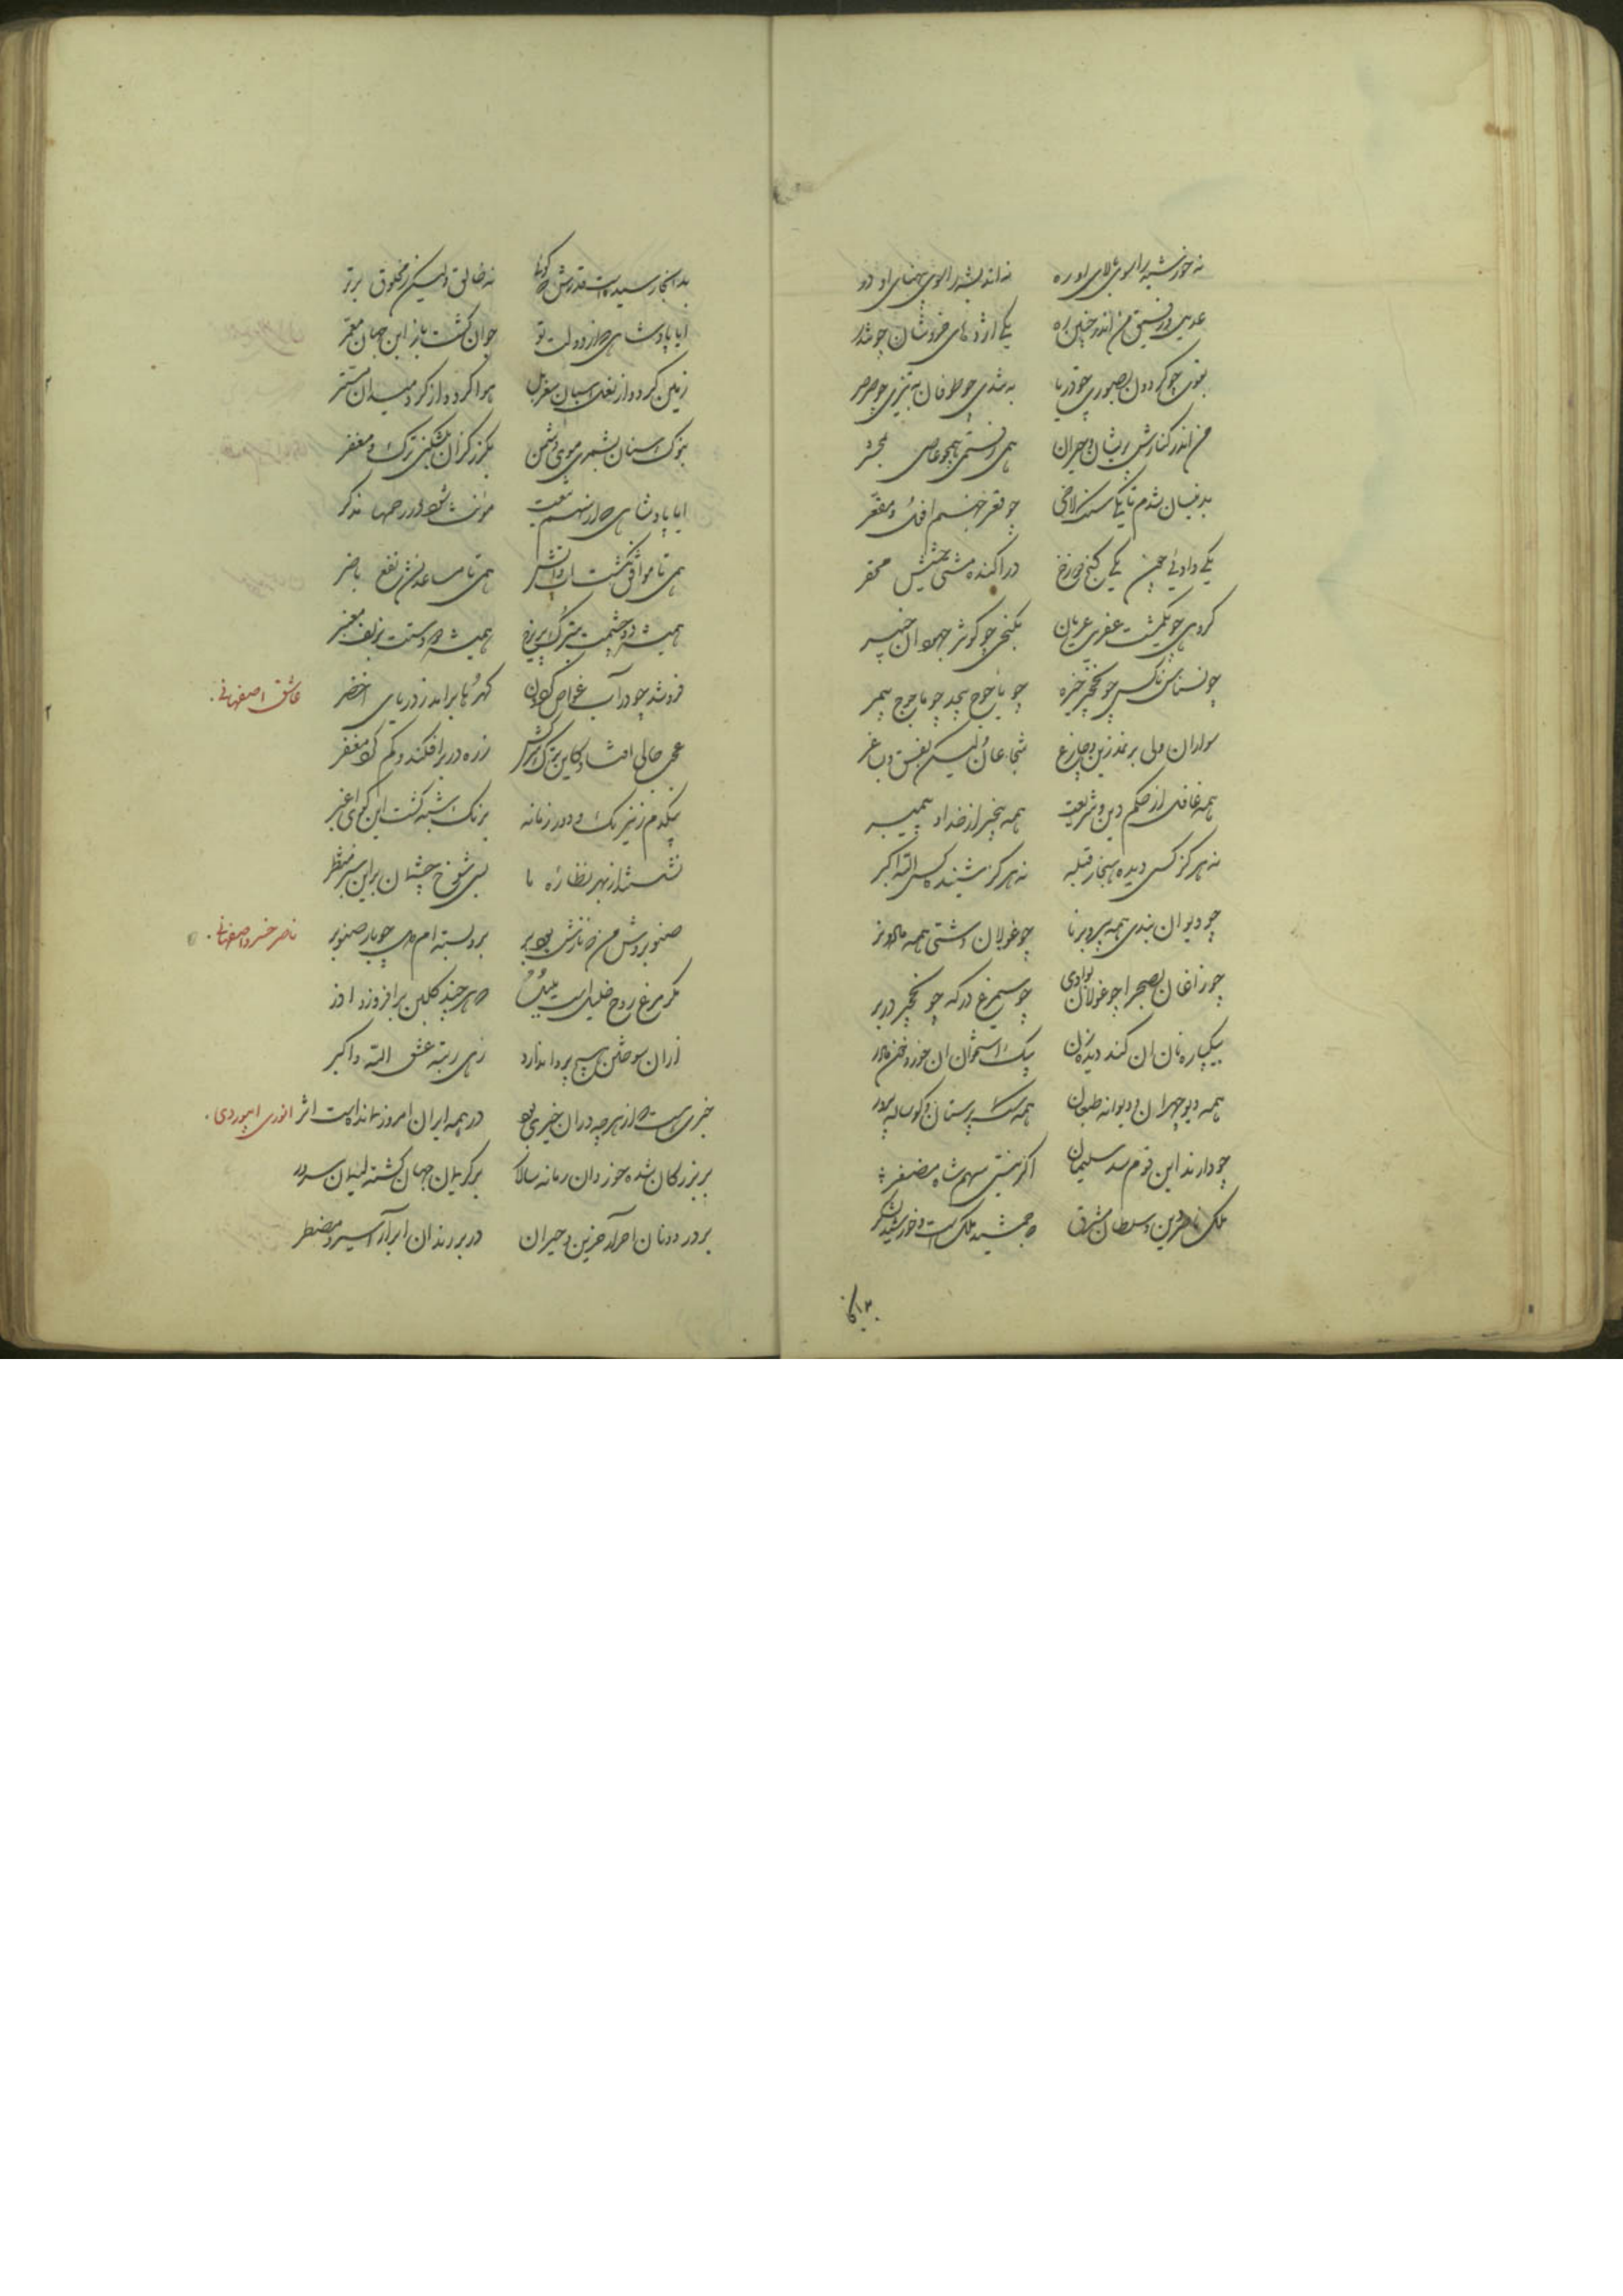 نه خورشید را سوی بالای او ره نه اندیشه را سوی پهنای او در
عدیل و رفیق من اندر چنین ره یکی اژدهای خروشان چو تندر
بقوی چو گردون بصبوری چو دریا به تندی چو طوفان به تیزی چو صرصر
من اندر کنارش پریشان و حیران همی رفتمی همچو عاصی بمحشر
بدینسان شدم تا یکی سنگلاخی چو قعر جهنم مقعر
یکی وادئی چین یکی کنج دوزخ دراکنده مشتی حشیش محقر
گروهی چو یکمشت عفریت عریان بکنجی چو گوش جهودان خیبر
چو نسناس ناکس چو نخجیر خیره چو یاجوج بیحد چو ماجوج بیمر
سواران ولی بر نمد زین و چارغ شجاعان ولیکن بفسق و بساغر
همه غافل از حکم دین و شریعت همه بیخبر از خدا و پیمبر
نه هرگز کسی دیده هنجار قبله نه هرگز شنیده کس الله اکبر
چو دیوان بندی همه پیر و برنا چو غولان دشتی همه ماده و نر
چو زاغان بصحرا چو غولان بوادی چو سیمرغ در که چو نخجیر در بر
بیکپاره نان آن کند دیده زن بیک استخوان آن خورد خون مادر
همه دیو چهران و دیوانه طبعان همه سگ پرستان و گوساله پرور
چو دارند این قوم سد سلیمان اگر نیستی سهم شاه مضفر
ملک ناصر دین و سلطان مشرق که جمشید ملک است و خورشید لشکر
بدانجا رسیده است قدرش که گوئی نه خالق ولیکن ز مخلوق برتر
ایا پادشاهی که از دولت تو جوان گشت باز این جهان معمر
زمین کرده از نعل اسبان مغربل هوا کرده از گرد میدان مستر
بنوک سنان بشمری موی دشمن بگرز گران بشکنی ترک و مغفر
ایا پادشاهی که از سهم تیغت مونث شود در رحمها مذکر
همی تا موافق نگشت آب و آتش همی تا مساعد نشد نفع با ضر
همیشه دو چشمت بترک پریرخ همیشه دو دستت بزلف معنبر
فرو شد چو در آب غواص گردون گهرها برآمد ز دریای اخضر عاشق اصفهانی.
عجب حالی افتاد کاین ترک سرکش زره در بر افکند و گم کرد مغفر
بیکدم ز نیرنگ و دور زمانه برنگ شبه گشت این گوی اغبر
نشستند از بهر نظاره ما بسی شوخ چشمان بر این سبز منظر
صنوبروش من که نارش بود بر برو بسته ام دل چو بار صنوبر ناصر خسرو اصفهانی.
مگر مرغ روح خلیل است بلبل که هر چند گلبن برافروزد آذر
از آن سوختن هیچ پروا ندارد زهی رتبه عشق الله و اکبر
خبری هست که از هر چه در آن خیری بود در همه ایران امروز نماندست اثر انوری ابیوردی.
بر بزرگان شده خوردان زمانه سالار بر کریمان جهان گشته لئیمان سرور
بر در دونان احرار حزین و حیران در بر رندان ابرار اسیر و مضطر